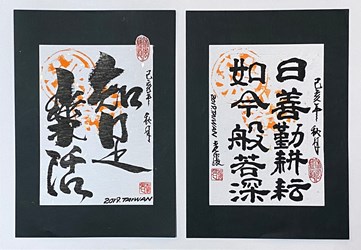 己亥年 秋月
知足
樂活
2019. TAIWAN
己亥年 秋月
日善勤耕耘
如今般若深
2019 TAIWAN